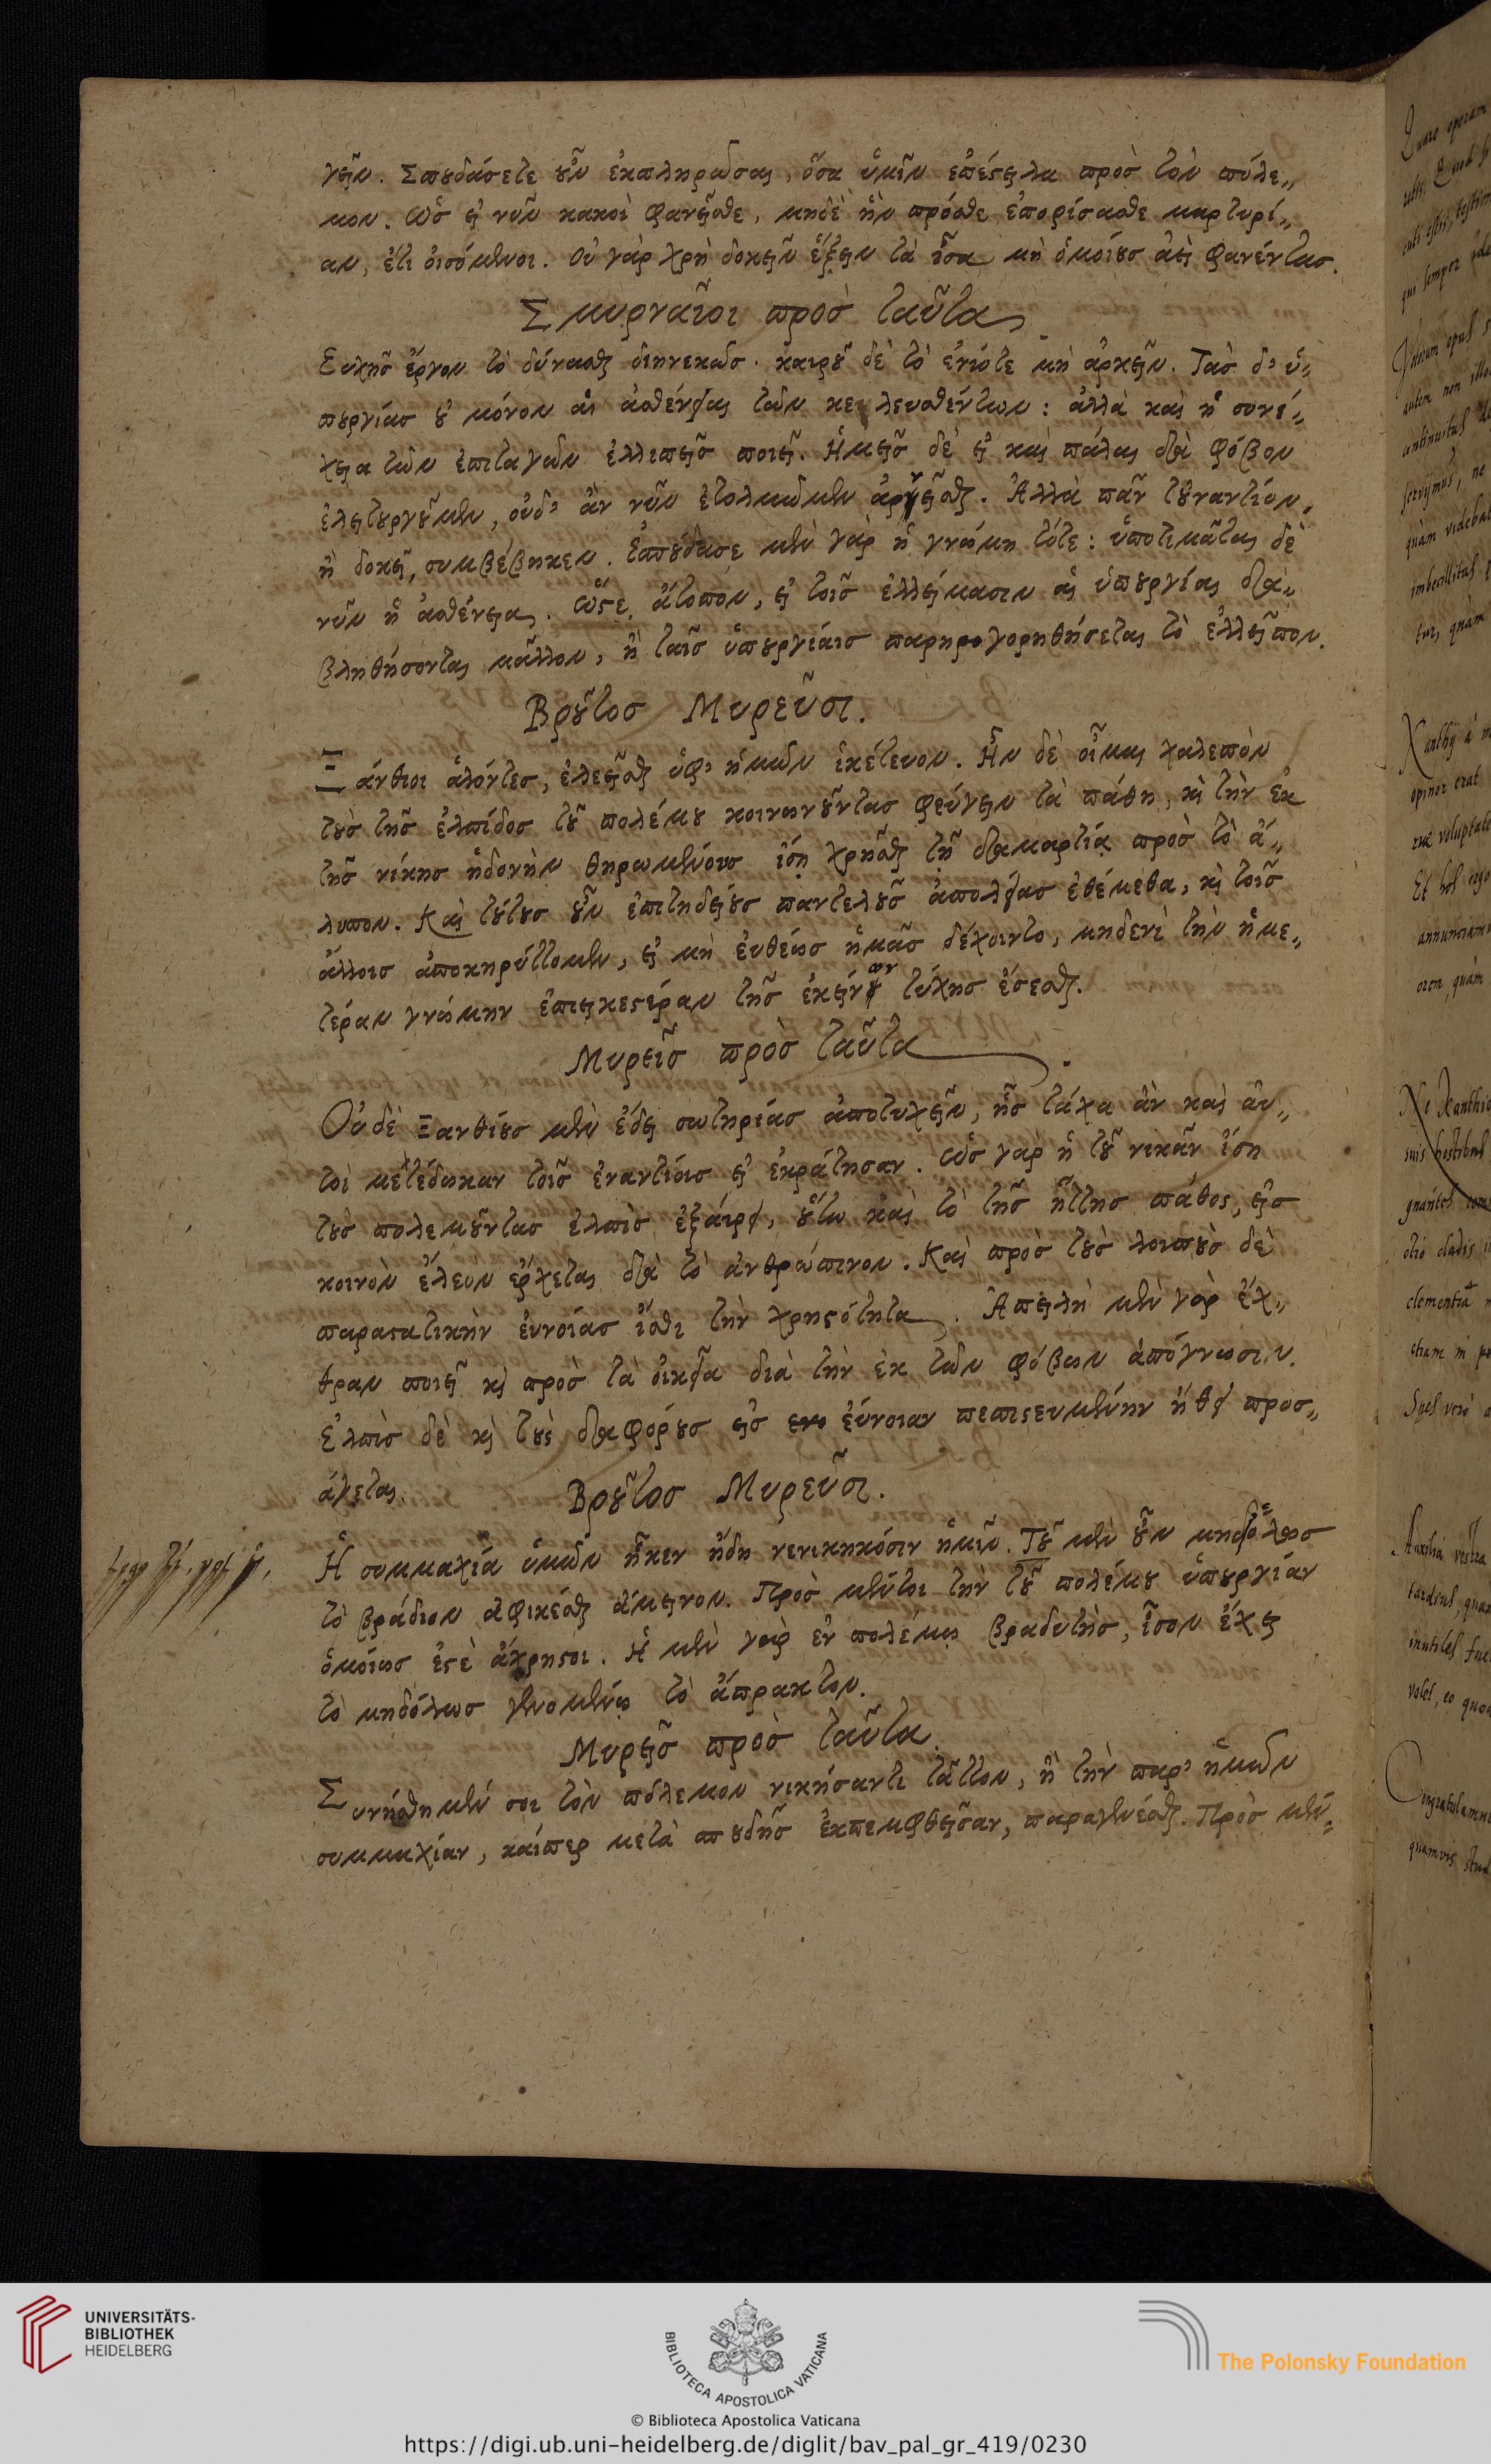 γεῖν. Σπουδάσετε οὖν ἐκπληρῶσαι, ὅσα ὑμῖν ἐπέστειλα πρὸς τὸν πόλε„
μον. ὡς εἰ νῦν κακοὶ φανεῖσθε, μηδὲ ἣν πρόσθε ἐπορίσασθε μαρτυρί„
αν, ἔτι οἰσόμενοι. Οὐ γὰρ χρὴ δοκεῖν ἕξειν τὰ ἴσα μὴ ὁμοίους ἀεὶ φανέντας.
Σμυρναῖοι πρὸς ταῦτα
Εὐχῆς ἔργον τὸ δύνασθαι διηνεκῶς. καιροῦ δὲ τὸ ἐνίοτε μὴ ἀρκεῖν. Τὰς δ' ὑ„
πουργίας οὐ μόνον αἱ ἀσθένειαι τῶν κελευσθέντων: ἀλλὰ καὶ ἡ συνέ„
χεια τῶν ἐπιταγῶν ἐλλιπεῖς ποιεῖ. Ἡμεῖς δὲ εἰ καὶ πάλαι διὰ φόβον
ἐλειτουργοῦμεν, οὐδ' ἂν νῦν ἐτολμῶμεν ἀρνεῖσθαι. Ἀλλὰ πᾶν τοὐναντίον,
ἢ δοκεῖ, συμβέβηκεν. Ἐσπούδασε μὲν γὰρ ἡ γνώμη τότε: ὑποτιμᾶται δὲ
νῦν ἡ ἀσθένεια. ὥστε ἄτοπον, εἰ τοῖς ἐλλείμασιν αἱ ὑπουργίαι δια„
βληθήσονται μᾶλλον, ἢ ταῖς ὑπουργίαις παρηγορηθήσεται τὸ ἐλλεῖπον.
Βροῦτος Μυρεῦσι.
Ξάνθιοι ἁλόντες, ἐλεεῖσθαι ὑφ' ἡμῶν ἱκέτευον. Ἦν δὲ οἶμαι χαλεπὸν
τοὺς τῆς ἐλπίδος τοῦ πολέμου κοινωνοῦντας φεύγειν τὰ πάθη, καὶ τὴν ἐκ
τῆς νίκης ἡδονὴν θηρωμένους ἴση χρῆσθαι τῇ διαμαρτίᾳ πρὸς τὸ ἄ„
λυπον. Καὶ τούτους οὖν ἐπιτηδείους παντελοῦς ἀπολείας ἐθέμεθα, καὶ τοῖς
ἄλλοις ἀποκηρύττομεν, εἰ μὴ εὐθέως ἡμᾶς δέχοιντο, μηδενὶ τὴν ἡμε„
τέραν γνώμην ἐπιεικεστέραν τῆς ἐκείνων τύχης ἔσεσθαι.
Μυρεῖς πρὸς ταῦτα.
Οὐδὲ Ξανθίους μὲν ἔδει σωτηρίας ἀποτυχεῖν, ἧς τάχα ἂν καὶ αὐ„
τοὶ μετέδωκαν τοῖς ἐναντίοις εἰ ἐκράτησαν. ὡς γὰρ ἡ τοῦ νικᾶν ἴση
τοὺς πολεμοῦντας ἐλπὶς ἐξαίρει, οὕτω καὶ τὸ τῆς ἥττης πάθος, εἰς
κοινὸν ἔλεον ἔρχεται διὰ τὸ ἀνθρώπινον. Καὶ πρὸς τοὺς λοιποὺς δὲ
παραστατικὴν εὐνοίας ἴσθι τὴν χρηστότητα. Ἀπειλὴ μὲν γὰρ ἔχ„
θραν ποιεῖ καὶ πρὸς τὰ οἰκεῖα διὰ τὴν ἐκ τῶν φόβων ἀπόγνωσιν.
Ἐλπὶς δὲ καὶ τοὺς διαφόρους εἰς εὔνοιαν πεπιστευμένην ἤθει προσ„
άγεται.
Βροῦτος Μυρεῦσι.
Ἡ συμμαχία ὑμῶν ἧκεν ἤδη νενικηκόσιν ἡμῖν. Τοῦ μὲν οὖν μηδόλως
τὸ βράδιον ἀφικέσθαι ἄμεινον. Πρὸς μέντοι τὴν τοῦ πολέμου ὑπουργίαν
ὁμοίως ἐστὲ ἄχρηστοι. Ἡ μὲν γὰρ ἐν πολέμῳ βραδυτὴς, ἴσον ἔχει
τὸ μηδόλως γενομένῳ τὸ ἄπρακτον.
Μυρεῖς πρὸς ταῦτα.
Συνήσθημέν σοι τὸν πόλεμον νικήσαντι τάττον, ἢ τὴν παρ' ἡμῶν
συμμαχίαν, καίπερ μετὰ σπουδῆς ἐκπεμφθεῖσαν, παραγενέσθαι. Πρὸς μέν„
UNIVERSITÄTS-
BIBLIOTHEK
HEIDELBERG
BIBLIOTECA APOSTOLICA VATICANA
The Polonsky Foundation
© Biblioteca Apostolica Vaticana
https://digi.ub.uni-heidelberg.de/diglit/bav_pal_gr_419/0230